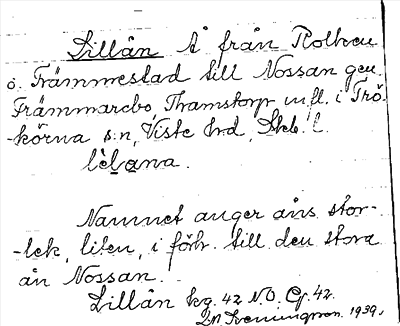 Lillån Å från Rolken
o. Främmestad till Nossan gen.
Främmarebo, Thamstorp m.fl. i Trö-
-körna s:n, Viste hrd, Skb. l.
lìlɑna.
Namnet anger åns stor-
-lek, liten, i förh. till den stora
ån Nossan.
Lillån kg. 42 N.O. Cp. 42.
1939.